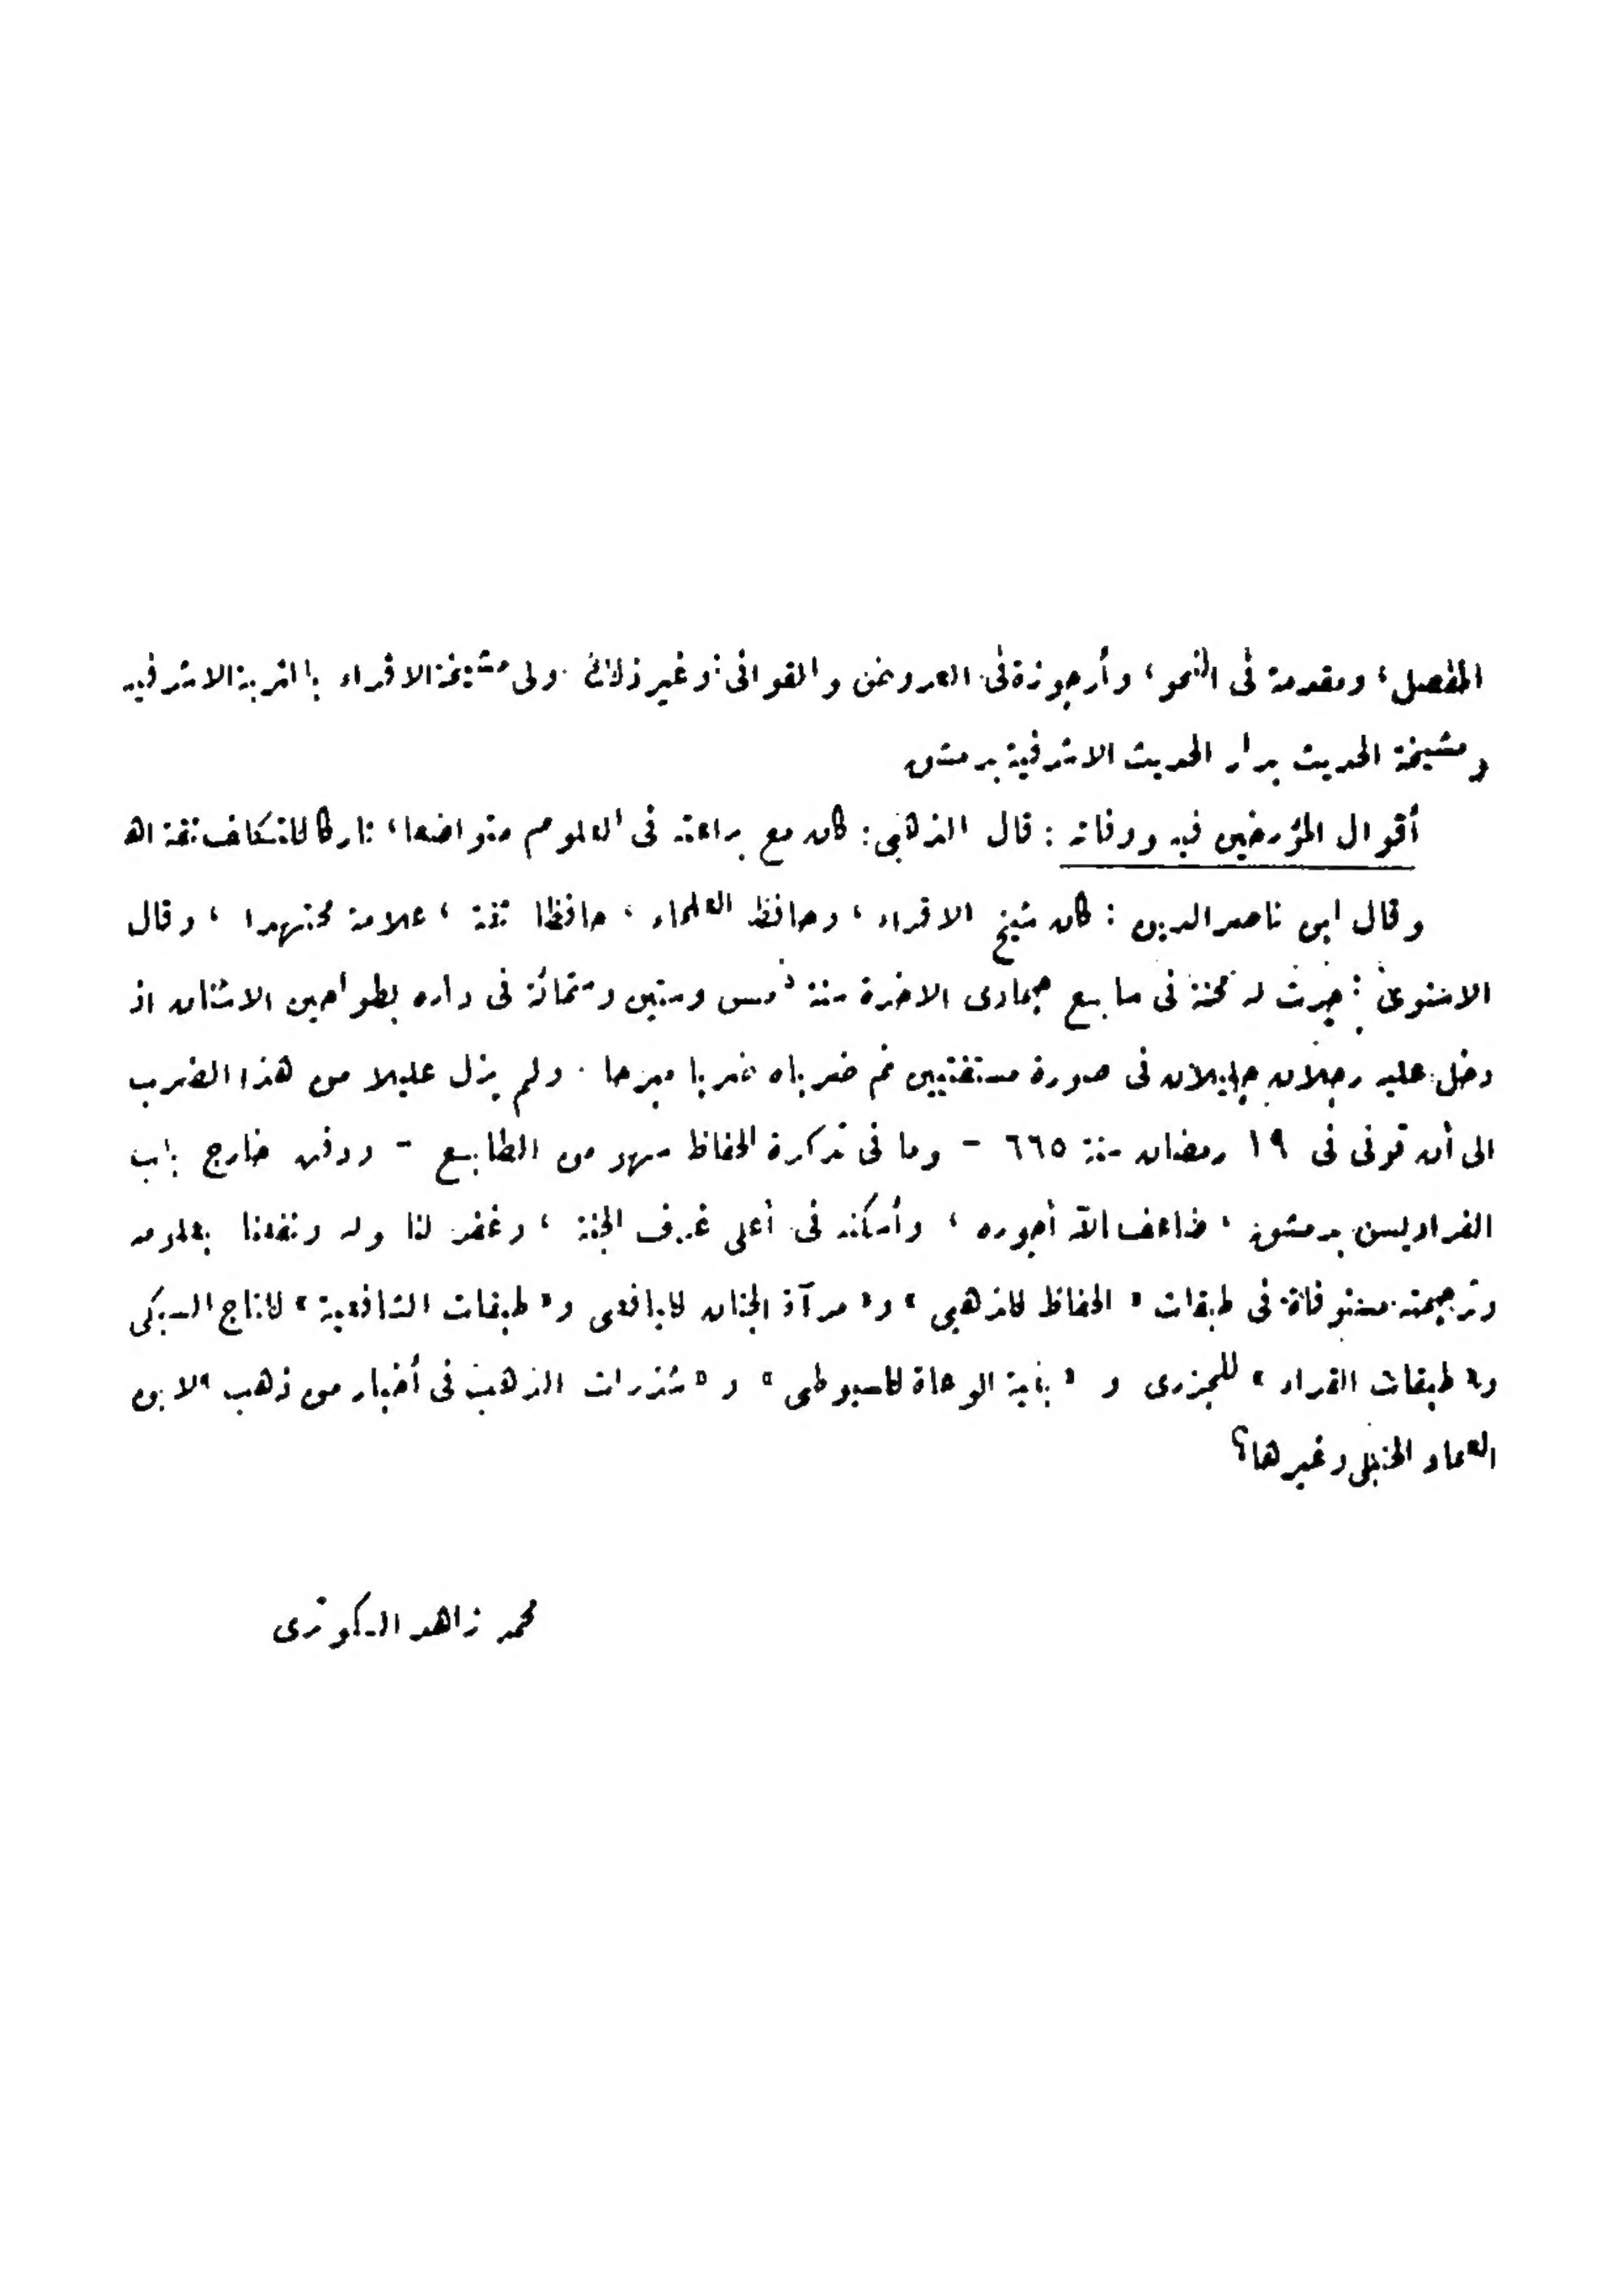 المفصل، ومقدمة فى النحو، وأرجوزة فى العروض والقوافى، وغير ذلك. ولى مشيخة الاقراء بالتربة الاشرفيه
ومشيخة الحديث بدار الحديث الاشرفية بدمشق
أقوال المؤرخين فيه ووفاته : قال الذهبى: كان مع براعته فى العلوم متواضعا، تاركا للتكلف ثقة اه
وقال ابن ناصر الدين : كان شيخ الاقراء ، وحافظ العلماء ، حافظا ثقة ، علامة مجتهدا ، وقال
الاسنوى : جرت له محنة فى سابع جمادى الاخرة سنة خمس وستين وستمائة فى داره بطواحين الاشنان اذ
دخل عليه رجلان جليلان فى صورة مستفتيين ثم ضرباه ضربا مبرحا . ولم يزل عليلا من هذا الضرب
الى أن توفى فى ١٩ رمضان سنة ٦٦٥ – وما فى تذكرة الحفاظ سهو من الطابع – ودفن خارج باب
الفراديس بدمشق ، ضاعف الله أجوره ، وأسكنه فى أعلى غرف الجنة ، وغفر لنا وله ونفعنا بعلومه
وترجمته مستوفاة فى طبقات « الحفاظ للذهبى » و« مرآة الجنان لليافعى و« طبقات الشافعية » للتاج السبكى
و« طبقات القراء » للجزرى و « بغية الوعاة للسيوطى » و « شذرات الذهب فى أخبار من ذهب » لابن
العماد الحنبلى وغيرها؟
محمد زاهد الكوثرى